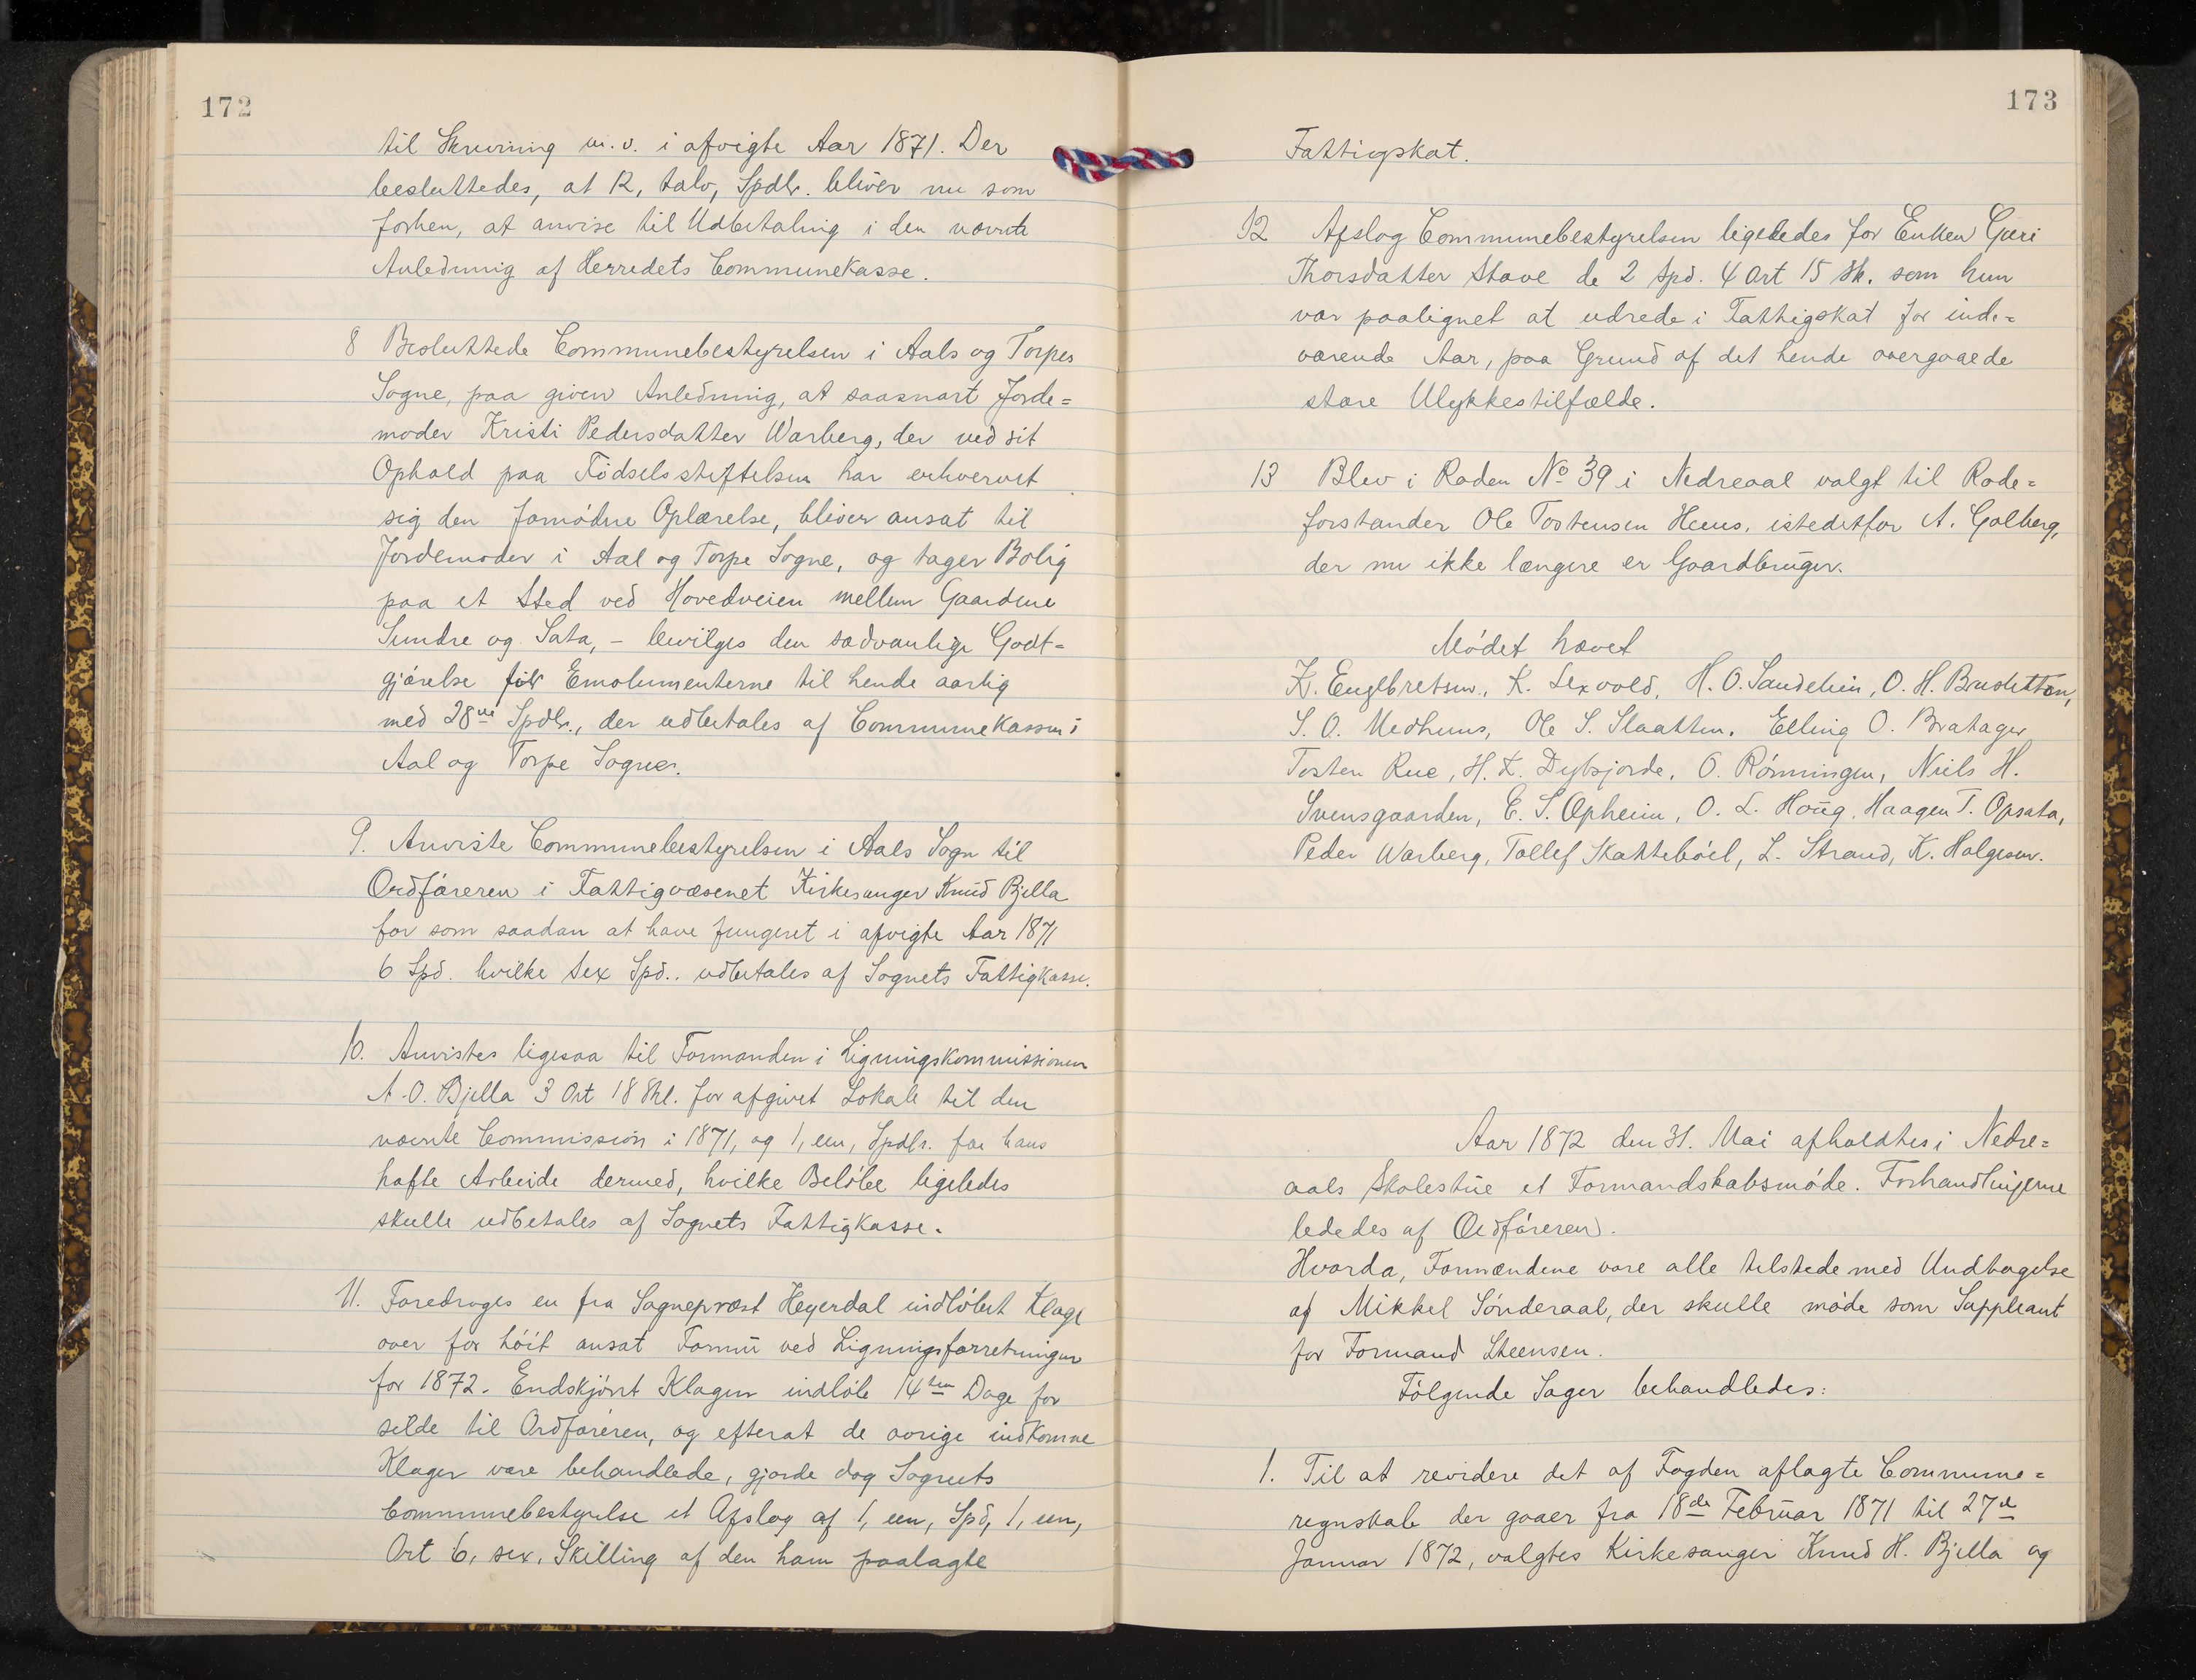 172
til Skrivning m.v. i afvigte Aar 1871. Der
besluttedes, at 12, tolv, Spdlr. bliver nu som
forhen, at anvise til Udbetaling i den nævnte
Anledning af Herredets Communekasse.
8 Besluttede Communebestyrelsen i Aals og Torpes
Sogne, paa given Anledning, at saasnart Jorde=
moder Kristi Pedersdatter Warberg, der ved sit
Ophold paa Födselsstiftelsen har erhvervet
sig den fornódne Oplærelse, bliver ansat til
Jordemoder i Aal og Torpe Sogne, og tager Bolig
paa et Sted ved Hovedveien mellem Gaardene
Sundre og Sata, - bevilges den sædvanlige Godt-
gjörelse för Emolumenterne til hende aarlig
med 28ve Spdlr., der udbetales af Communekassen i
Aal og Torpe Sogner.
9. Anviste Communebestyrelsen i Aals Sogn til
Ordföreren i Fattigvæsenet Kirkesanger Knud Bjella
for som saadan at have fungeret i afvigte Aar 1871
6 Spd. hvilke sex Spd.. udbetales af Sognets Fattigkasse.
10. Anvistes ligesaa til Formanden i Ligningskommissionen
A.O. Bjella 3 Ort 18 Skl. for afgivet Lokale til den
nævnte Commission i 1871, og 1, een, Spdlr. for hans
hafte Arbeide dermed, hvilke Belóbe ligeledes
skulle udbetales af Sognets Fattigkasse.
11. Foredroges en fra Sognepræst Heyerdal indlóbet Klage
over for hóit ansat Formū ved Ligningsforretningen
for 1872. Endskjónt Klagen indlób 14ten Dage for
silde til Ordfóreren, og efterat de övrige indkomne
Klager vare behandlede, gjorde dog Sognets
Communebestyrelse et Afslag af 1, een, Spd, 1, een,
Ort 6, sex, Skilling af den ham paalagte
173
Fattigskat.
12 Afslog Communebestyrelsen ligeledes for Enken Guri
Thorsdatter Stave de 2 Spd. 4 Ort 15 Sk. som hun
var paalignet at udrede i Fattigskat for inde=
værende Aar, paa Grund af det hende overgaaede
store Ulykkestilfælde.
13 Blev i Roden No 39 i Nedreaal valgt til Rode=
forstander Ole Tostensen Huus, istedetfor A. Golberg,
der nu ikke længere er Gaardbruger.
Módet hævet
K. Englbretsen, K. Lexvold, H. O. Sandehin, O. H. Brusletten,
S. O. Medhuus, Ole S. Slaatten, Elling O. Bratager
Tosten Rue, H. K. Dybsjorde, O. Rónningen, Niels H.
Svensgaarden, E. S. Opheim, O. L. Houg, Haagen T. Opsata,
Peder Warberg, Tollef Skattebóel, L. Strand, K. Holgesen.
Aar 1872 den 31. Mai afholdtes i Nedre=
aals Skolestue et Formandskabsmóde. Forhandlingerne
lededes af Ordfóreren.
Hvorda, Formændene vare alle tilstede med Undtagelse
af Mikkel Sónderaal, der skulle móde som Suppleant
for Formand Steensen.
Fólgende Sager behandledes:
1. Til at revidere det af Fogden aflagte Commune=
regnskab der gaaer fra 18de Februar 1871 til 27de
Januar 1872, valgtes Kirkesanger Knud H. Bjella og